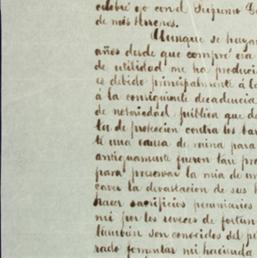 celebré yo con el Supremo Go
de mis terrenos.
Aunque se hayan
años desde que compré esa
de utilidad me ha produci
es debido principalmente á la
á la consiguiente decadencia
de nerviosidad pública que de
ta de proteccion contra los bar
te una causa de ruina para
antiguamente fueron tan pro
para preservar la mia de un
caver la devastacion de sus
hacer sacrificios pecuniarios
mi por los reveces de fortun
tambien son conocidos del p
rado fomentar mi hacienda